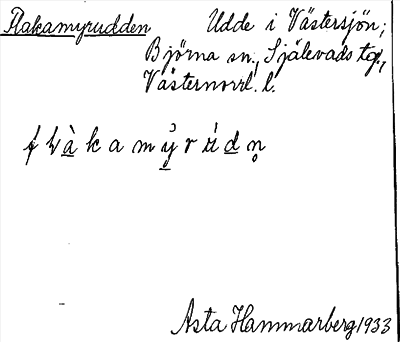 Flakamyrudden Udde i Västersjön;
Björna sn., Själevads tg.,
Västernorrl. l.
Asta Hammarberg 1933